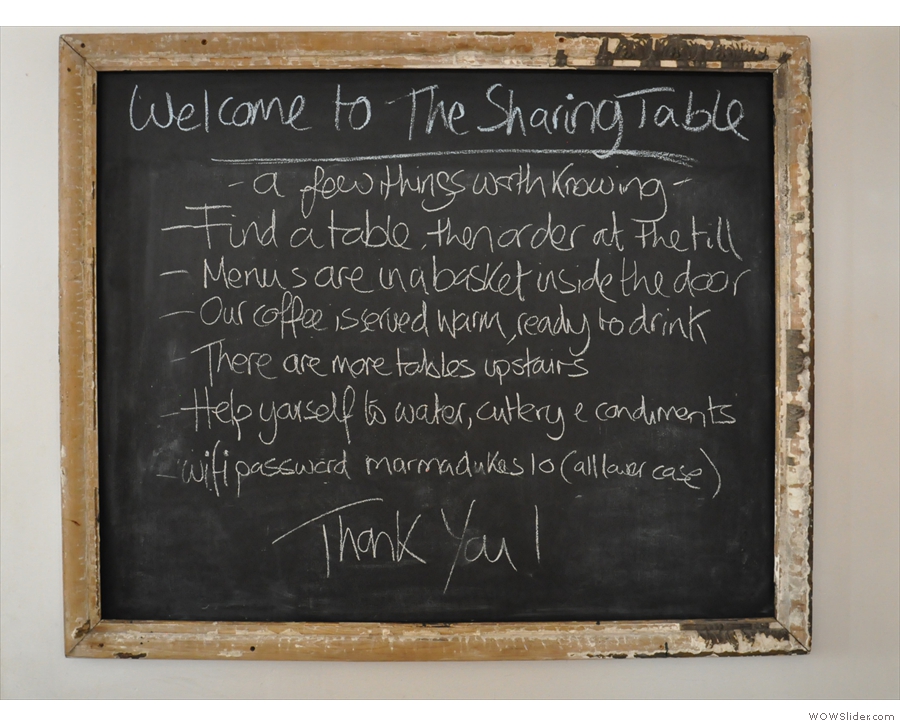 Welcome to The Sharing Table
- a few things worth knowing -
- Find a table, then order at the till
- Menus are in a basket inside the door
- Our coffee is served warm, ready to drink
- There are more tables upstairs
- Help yourself to water, cutlery & condiments
- wifi password marmadukes10 (all lower case)
Thank You!
WOWSlider.com